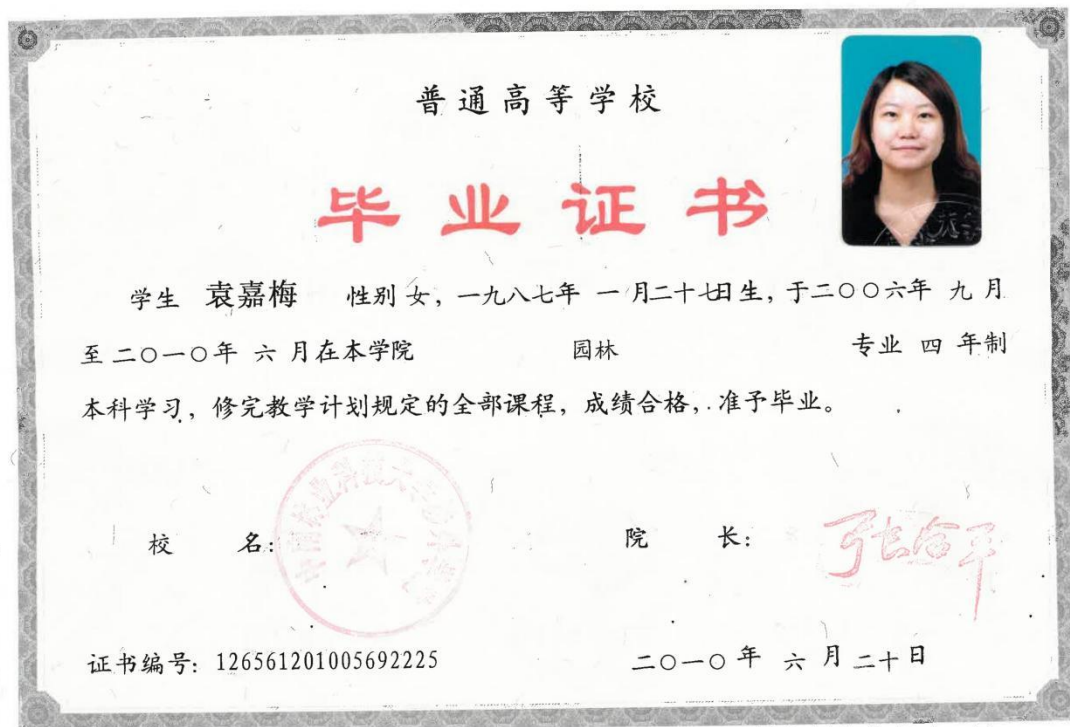 普通高等学校
毕业证书
学生 袁嘉梅 性别 女，一九八七年 一 月二十七日生，于二〇〇六年 九 月
至 二〇一〇年 六 月在本学院 园林 专业 四 年制
本科学习，修完教学计划规定的全部课程，成绩合格，准予毕业。
校 名：
中南林业科技大学涉外学院
院 长：
证书编号：126561201005692225
二〇一〇 年 六 月 二十日